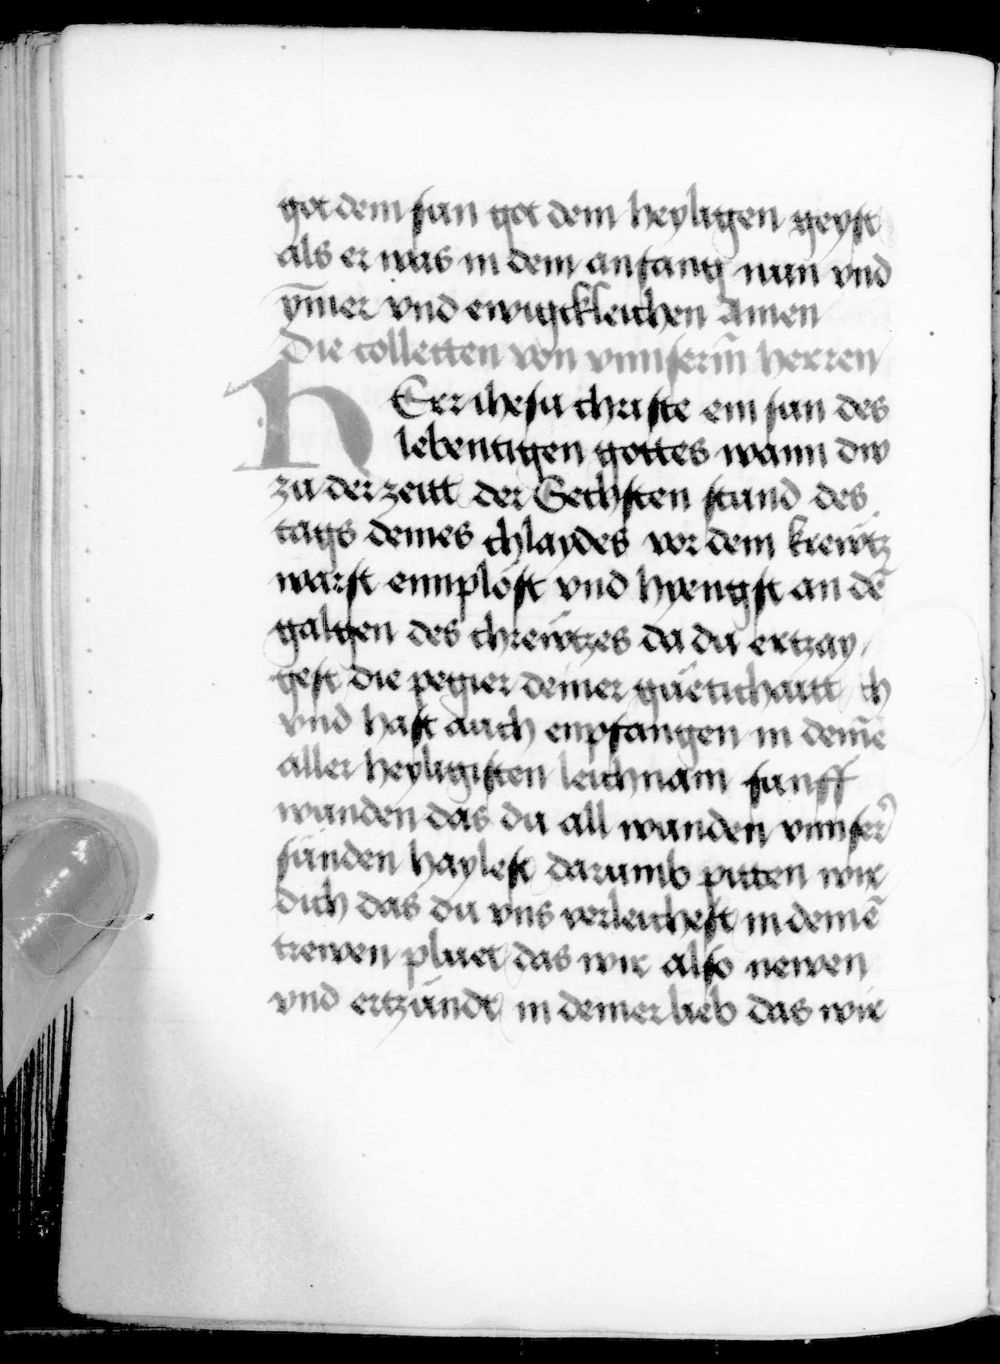 got dem sun got dem heyligen geyst
als er was in dem anfang nun vnd
ym̄er vnd ewigckleichen Amen
Die collecten von vnnserm̄ herren
HErr ihesu christe ein sun des
lebentigen gottes wann dw
zu der zeitt der Sechsten stund des
tags deines chlaydes vor dem krewtz
warst ennplost vnd hyengst an dē
galgen des chrewtzes da du ertzay
gest die pegier deiner guetichaitt
vnd hast auch empfangen in deinē
aller heyligisten leichnam funff
wunden das du all wunden vnnser
sünden haylest darumb pitten wir
dich das du vns verleichest in deinē
trewen pluet das wir also newen
vnd ertzündt in deiner lieb das wir